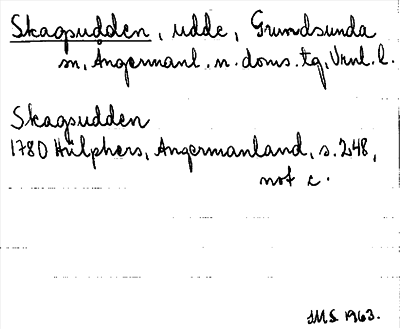 Skagsudden, udde, Grundsunda
sn, Ångermanl. n. doms. tg, Vrnl. l.
Skagsudden
1780 Hülphers, Angermanland, s. 248,
not c.
JMS 1963.